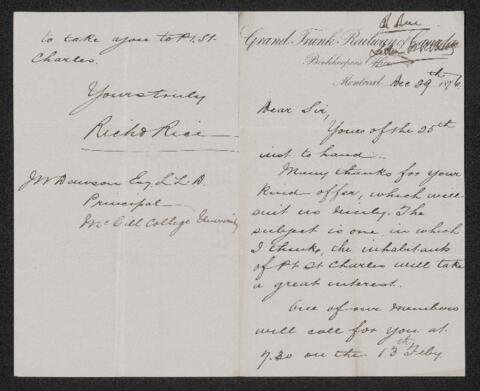 Grand Trunk Railway of
Bookkeepers
Montreal, Dec 29th 1876
Dear Sir,
Yours of the 25th
inst to hand.
Many thanks for your
kind offer, which will
suit us nicely. The
subject is one, in which
I think, the inhabitants
of Pt St Charles will take
a great interest.
One of our members
will call for you at
7.30 on the 13th Feby
to take you to Pt St.
Charles.
Yours truly
Richd Rice
JW Dawson Esq. L L D.
Principal
McGill College University